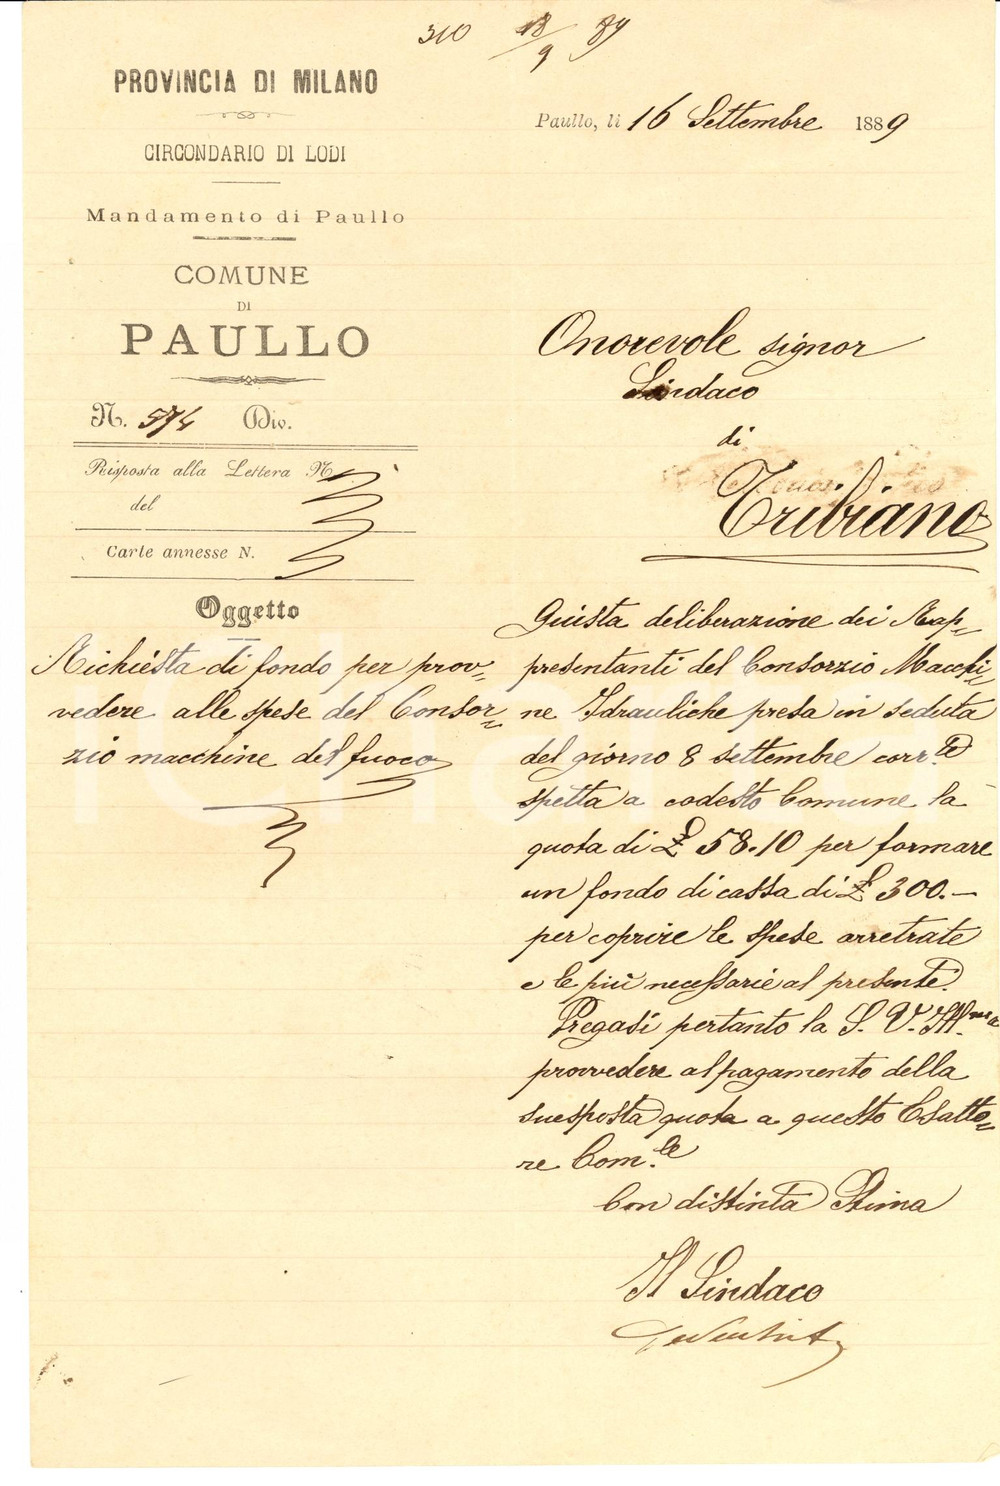 310 18/9 89
PROVINCIA DI MILANO
CIRCONDARIO DI LODI
Mandamento di Paullo
COMUNE
DI
PAULLO
N. 574 Div.
Risposta alla Lettera N.
del
Carte annesse N.
Oggetto
Richiesta di fondo per prov=
vedere alle spese del Consor=
zio macchine del fuoco
Paullo, li 16 Settembre 1889
Onorevole signor
Sindaco
di
Tribiano
Giusta deliberazione dei Rap=
presentanti del Consorzio Macchi=
ne Idrauliche presa in seduta
del giorno 8 settembre corr.te
spetta a codesto Comune la
quota di £ 58.10 per formare
un fondo di cassa di £ 300.—
per coprire le spese arretrate
e le più necessarie al presente.
Pregasi pertanto la S. V. Ill.ma
provvedere al pagamento della
suesposta quota a questo Esatto=
re Com.le
Con distinta Stima
Il Sindaco